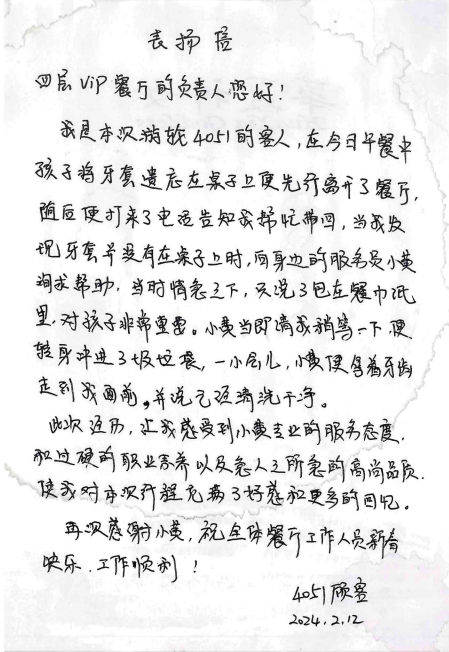 表扬信
四层ViP餐厅的负责人您好!
我是本次游轮4051的客人,在今日午餐中
孩子将牙套遗忘在桌子上便先行离开了餐厅,
随后便打来了电话告知我帮忙带回,当我发
现牙套并没有在桌子上时,向身边的服务员小黄
询求帮助,当时情急之下,只说了包在餐巾纸
里,对孩子非常重要。小黄当即请我稍等一下便
转身冲进了垃圾袋,一小会儿,小黄便拿着牙齿
走到我面前,并说已经清洗干净。
此次经历,让我感受到小黄专业的服务态度,
和过硬的职业素养以及急人之所急的高尚品质.
使我对本次行程充满了好感和更多的回忆。
再次感谢小黄,祝全体餐厅工作人员新春
快乐,工作顺利!
4051顾客
2024.2.12